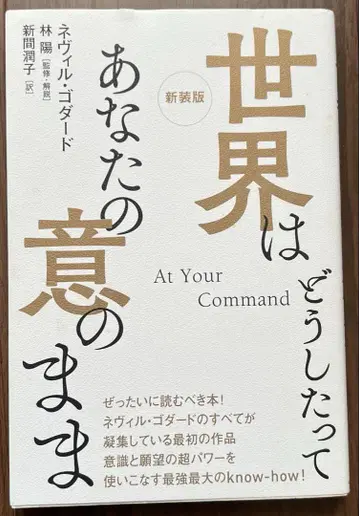 新装版
世界はどうしたって
あなたの意のまま
At Your
Command
ネヴィル・ゴダード
林 陽[監修・解説]
新間潤子[訳]
ぜったいに読むべき本!
ネヴィル・ゴダードのすべてが
凝集している最初の作品
意識と願望の超パワーを
使いこなす最強最大のknow-how!